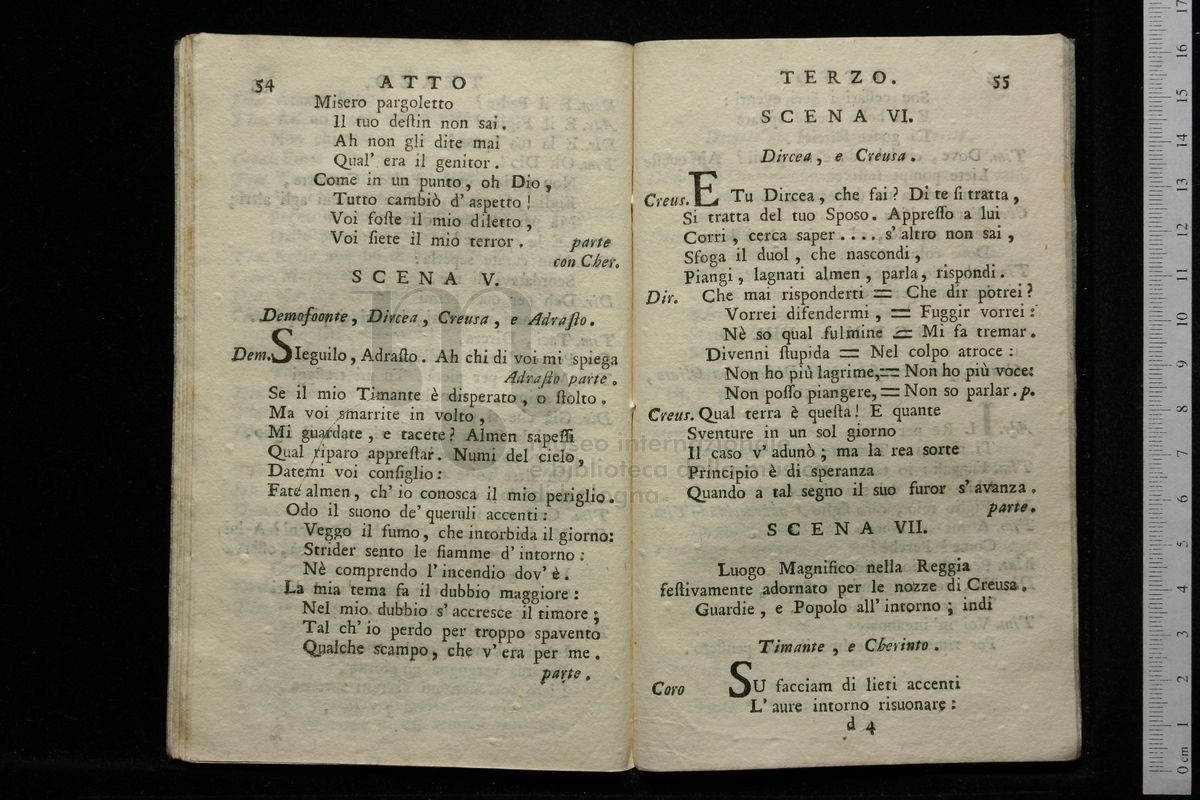 54
ATTO
Misero pargoletto
Il tuo deſtin non sai.
Ah non gli dite mai
Qual' era il genitor.
Come in un punto, oh Dio,
Tutto cambiò d' aspetto!
Voi foſte il mio diletto,
Voi ſiete il mio terror. parte
con Cher.
SCENA V.
Demofoonte, Dircea, Creusa, e Adraſto.
Dem. SIeguilo, Adraſto. Ah chi di voi mi spiega
Adraſto parte.
Se il mio Timante è disperato, o ſtolto.
Ma voi smarrite in volto,
Mi guardate, e tacete? Almen sapeſſi
Qual riparo appreſtar. Numi del cielo,
Datemi voi conſiglio:
Fate almen, ch' io conosca il mio periglio.
Odo il suono de' queruli accenti:
Veggo il fumo, che intorbida il giorno:
Strider sento le fiamme d' intorno:
Nè comprendo l' incendio dov' è.
La mia tema fa il dubbio maggiore:
Nel mio dubbio s' accresce il timore;
Tal ch' io perdo per troppo spavento
Qualche scampo, che v' era per me.
parte.
TERZO.
55
SCENA VI.
Dircea, e Creusa.
Creus. E Tu Dircea, che fai? Di te ſi tratta,
Si tratta del tuo Sposo. Appreſſo a lui
Corri, cerca saper.... s' altro non sai,
Sfoga il duol, che nascondi,
Piangi, lagnati almen, parla, rispondi.
Dir. Che mai risponderti = Che dir potrei?
Vorrei difendermi, = Fuggir vorrei:
Nè so qual fulmine = Mi fa tremar.
Divenni ſtupida = Nel colpo atroce:
Non ho più lagrime,= Non ho più voce:
Non poſſo piangere,= Non so parlar. p.
Creus. Qual terra è queſta! E quante
Sventure in un sol giorno
Il caso v' adunò; ma la rea sorte
Principio è di speranza
Quando a tal segno il suo furor s' avanza.
parte.
SCENA VII.
Luogo Magnifico nella Reggia
feſtivamente adornato per le nozze di Creusa.
Guardie, e Popolo all' intorno; indi
Timante, e Cherinto.
Coro SU facciam di lieti accenti
L' aure intorno risuonare:
d 4
museo internazionale
e biblioteca della musica
di bologna
0 cm 1 2 3 4 5 6 7 8 9 10 11 12 13 14 15 16 17